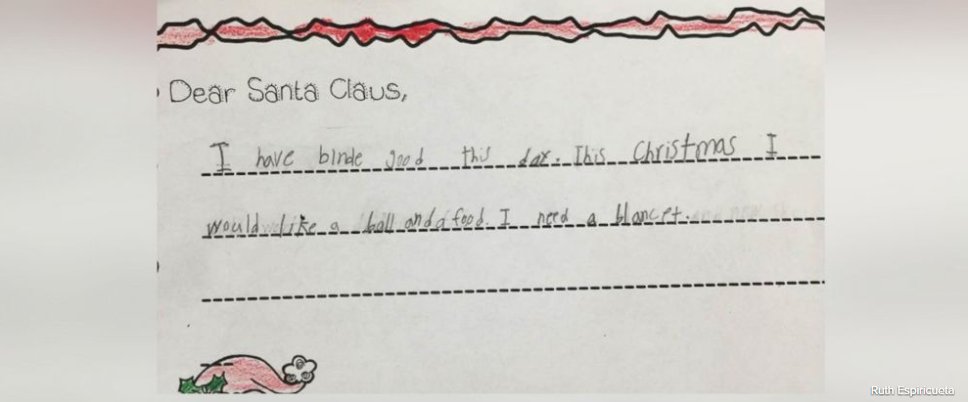 Dear Santa Claus,
I have binde good this day. This Christmas I
would like a ball and a food. I need a blancet.
Ruth Espiricueta